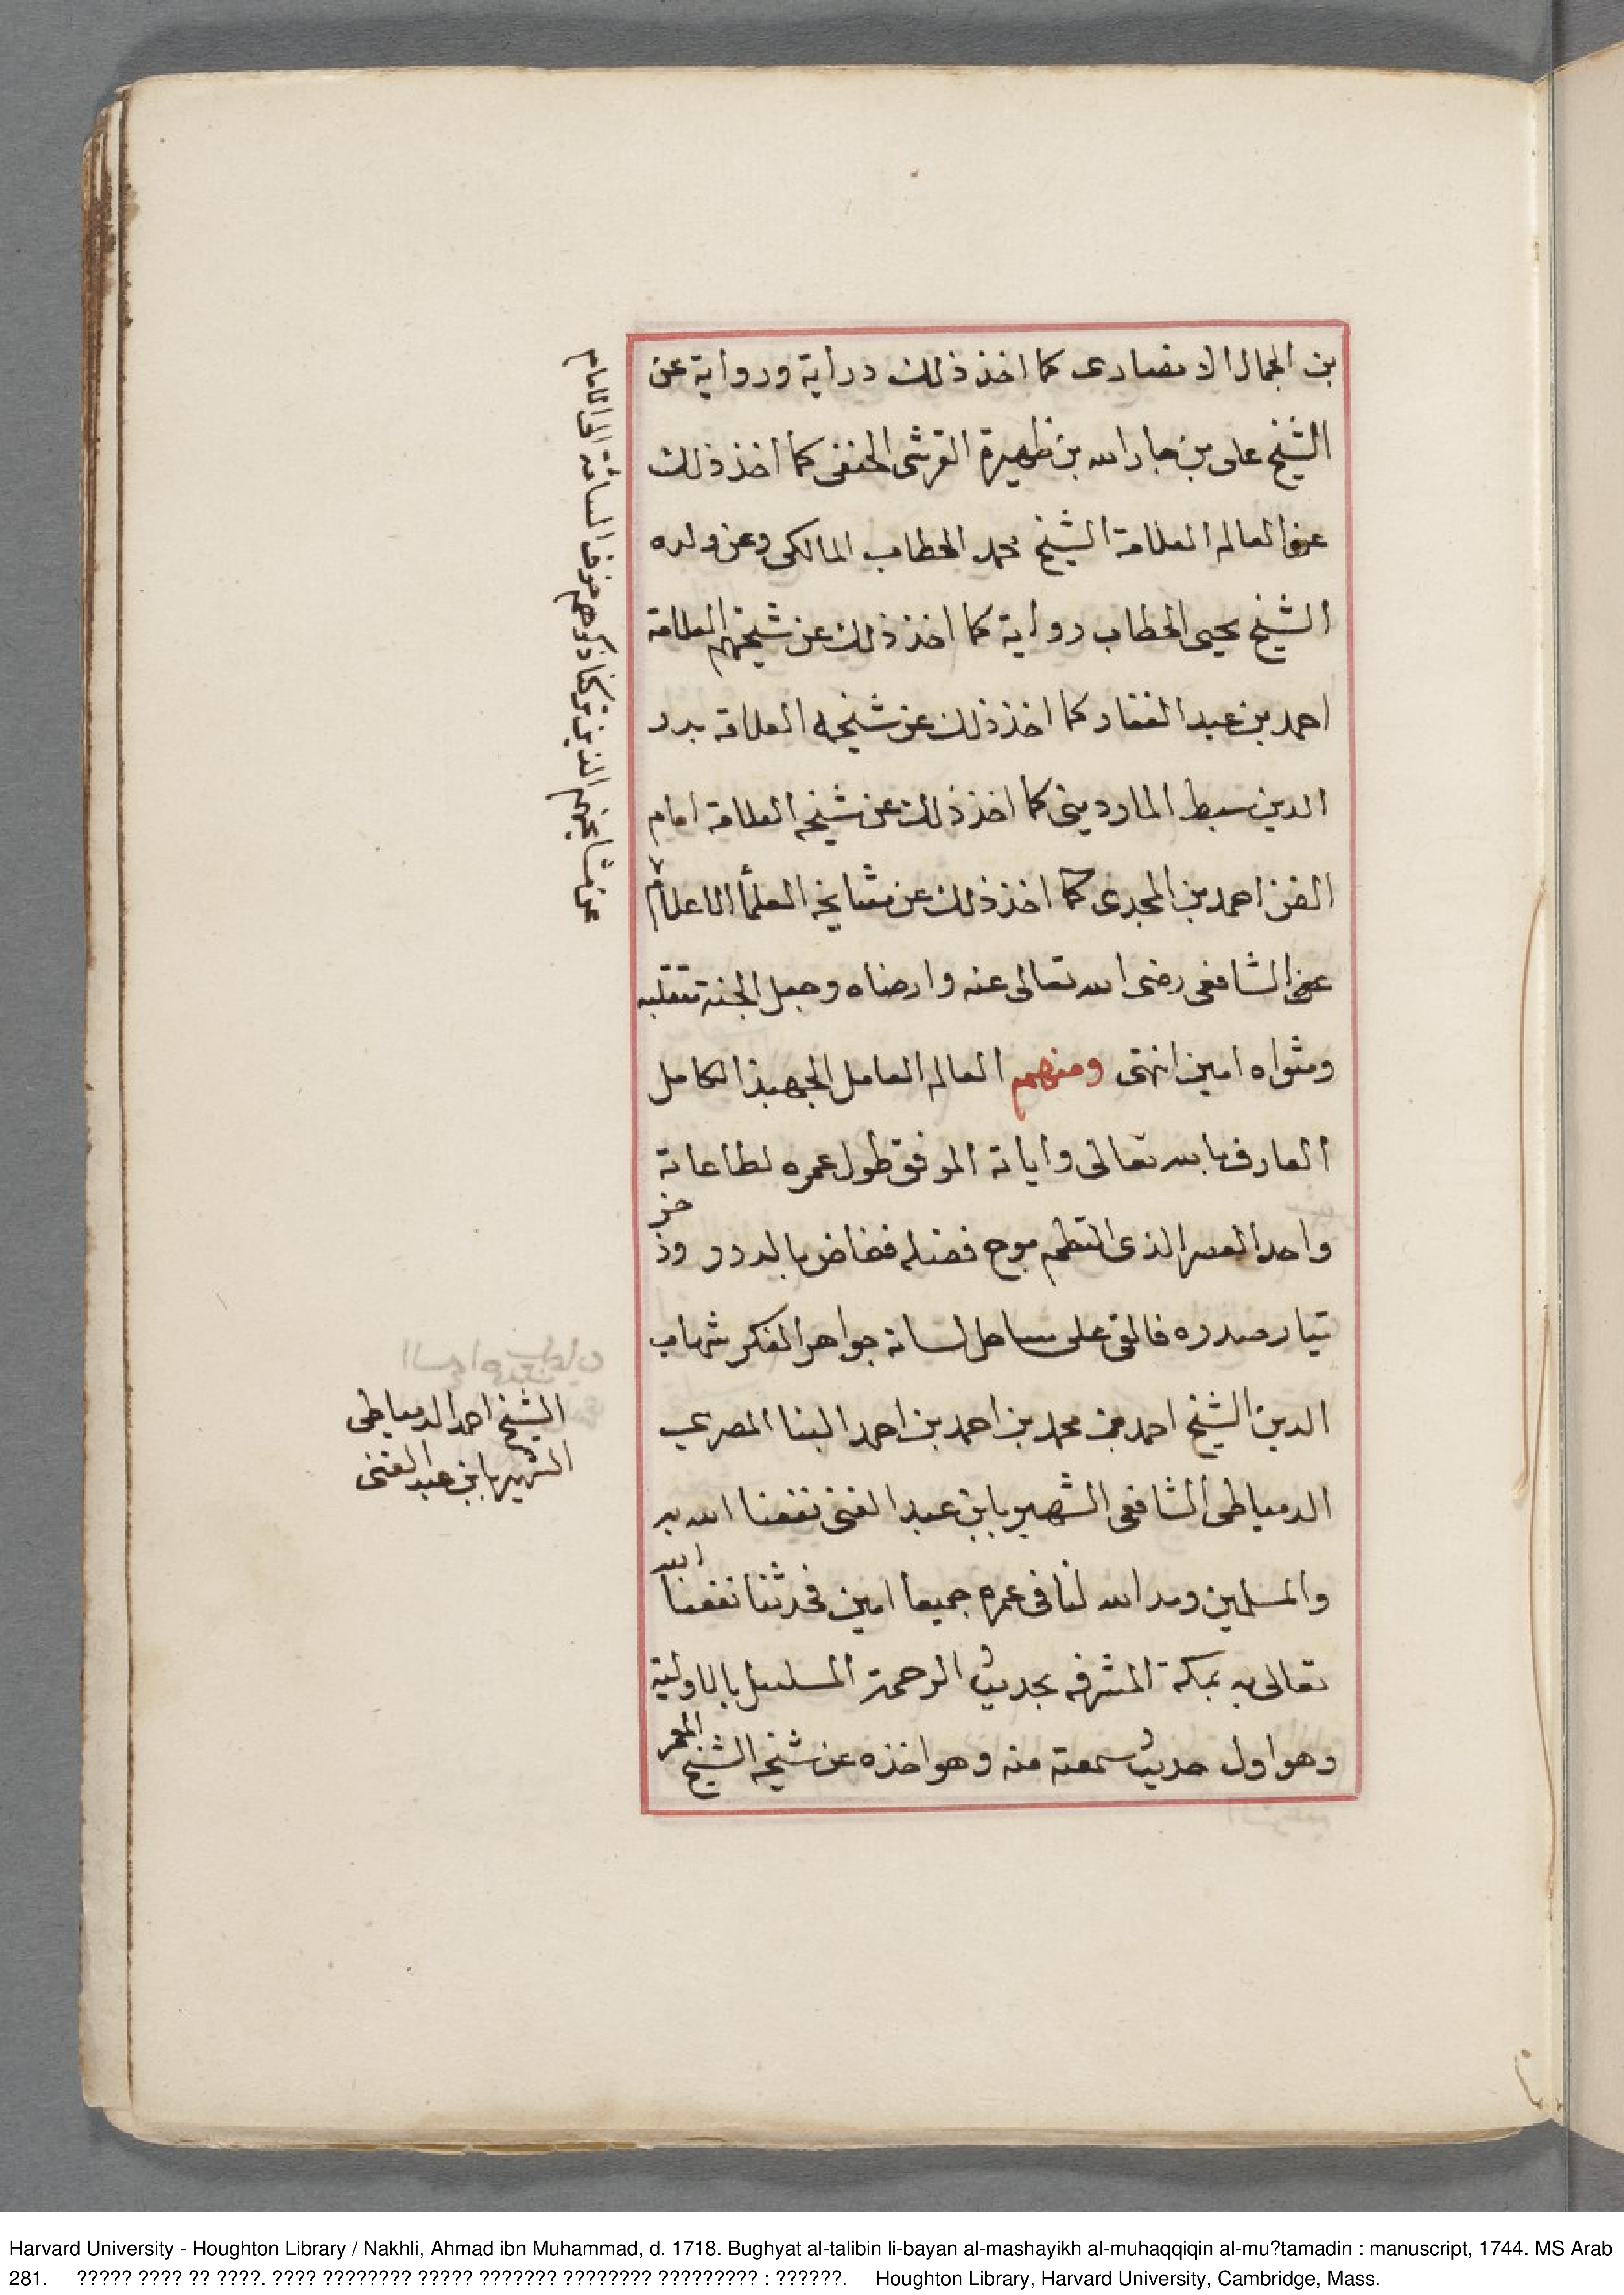 بن الجمال الانصارى كما اخذ ذلك دراية ورواية عن
الشيخ على بن جار الله بن ظهيرة القرشى الحنفى كما اخذ ذلك
عن العالم العلامة الشيخ محمد الحطاب المالكى وعن ولده
الشيخ يحيى الحطاب رواية كما اخذ ذلك عن شيخهم العلامة
احمد بن عبد الغفار كما اخذ ذلك عن شيخه العلامة بدر
الدين سبط الماردينى كما اخذ ذلك عن شيخه العلامة امام
الفن احمد بن المجدى كما اخذ ذلك عن مشايخه العلمأ الاعلام
عن الشافعى رضى الله تعالى عنه وارضاه وجعل الجنة متقلبه
ومثواه امين انتهى ومنهم العالم العامل الجهبذ الكامل
العارف بالله تعالى واياته الموفق طول عمره لطاعاته
واحد العصر الذى التطم موج فضله ففاض بالدرر وذخر
تيار صدره فالقى على ساحل لسانه جواهر الفكر شهاب
الدين الشيخ احمد بن محمد بن احمد بن احمد البنا المصرى
الدمياطى الشافعى الشهير بابن عبد الغنى نفعنا الله به
والمسلمين ومد الله لنا فى عمره جميعا امين فحدثنا نفعنا الله
تعالى به بمكة المشرفه بحديث الرحمة المسلسل بالاولية
وهو اول حديث سمعته منه وهو اخذه عن شيخه الشيخ المعمر
عن مشايخهم الذين تركنا ذكرهم خوف السأمة الى الامام
الشيخ احمد الدمياطى
الشهير بابن عبد الغنى
Harvard University - Houghton Library / Nakhli, Ahmad ibn Muhammad, d. 1718. Bughyat al-talibin li-bayan al-mashayikh al-muhaqqiqin al-mu?tamadin : manuscript, 1744. MS Arab
281. ????? ???? ?? ????. ???? ???????? ????? ??????? ???????? ????????? : ??????. Houghton Library, Harvard University, Cambridge, Mass.